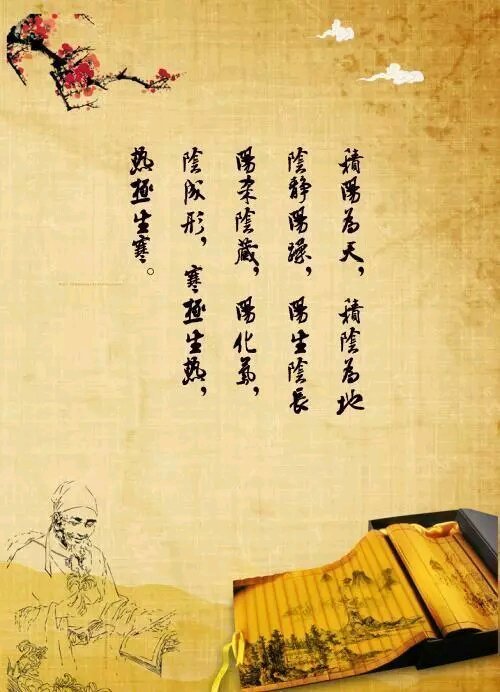 積陽為天，積陰為地
陰靜陽躁，陽生陰長
陽杀陰藏，陽化氣，
陰成形，寒極生熱，
熱極生寒。